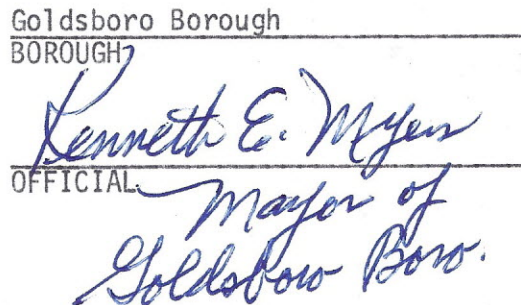 Goldsboro Borough
BOROUGH
Kenneth E. Myers
OFFICIAL
Mayor of
Goldsboro Boro.